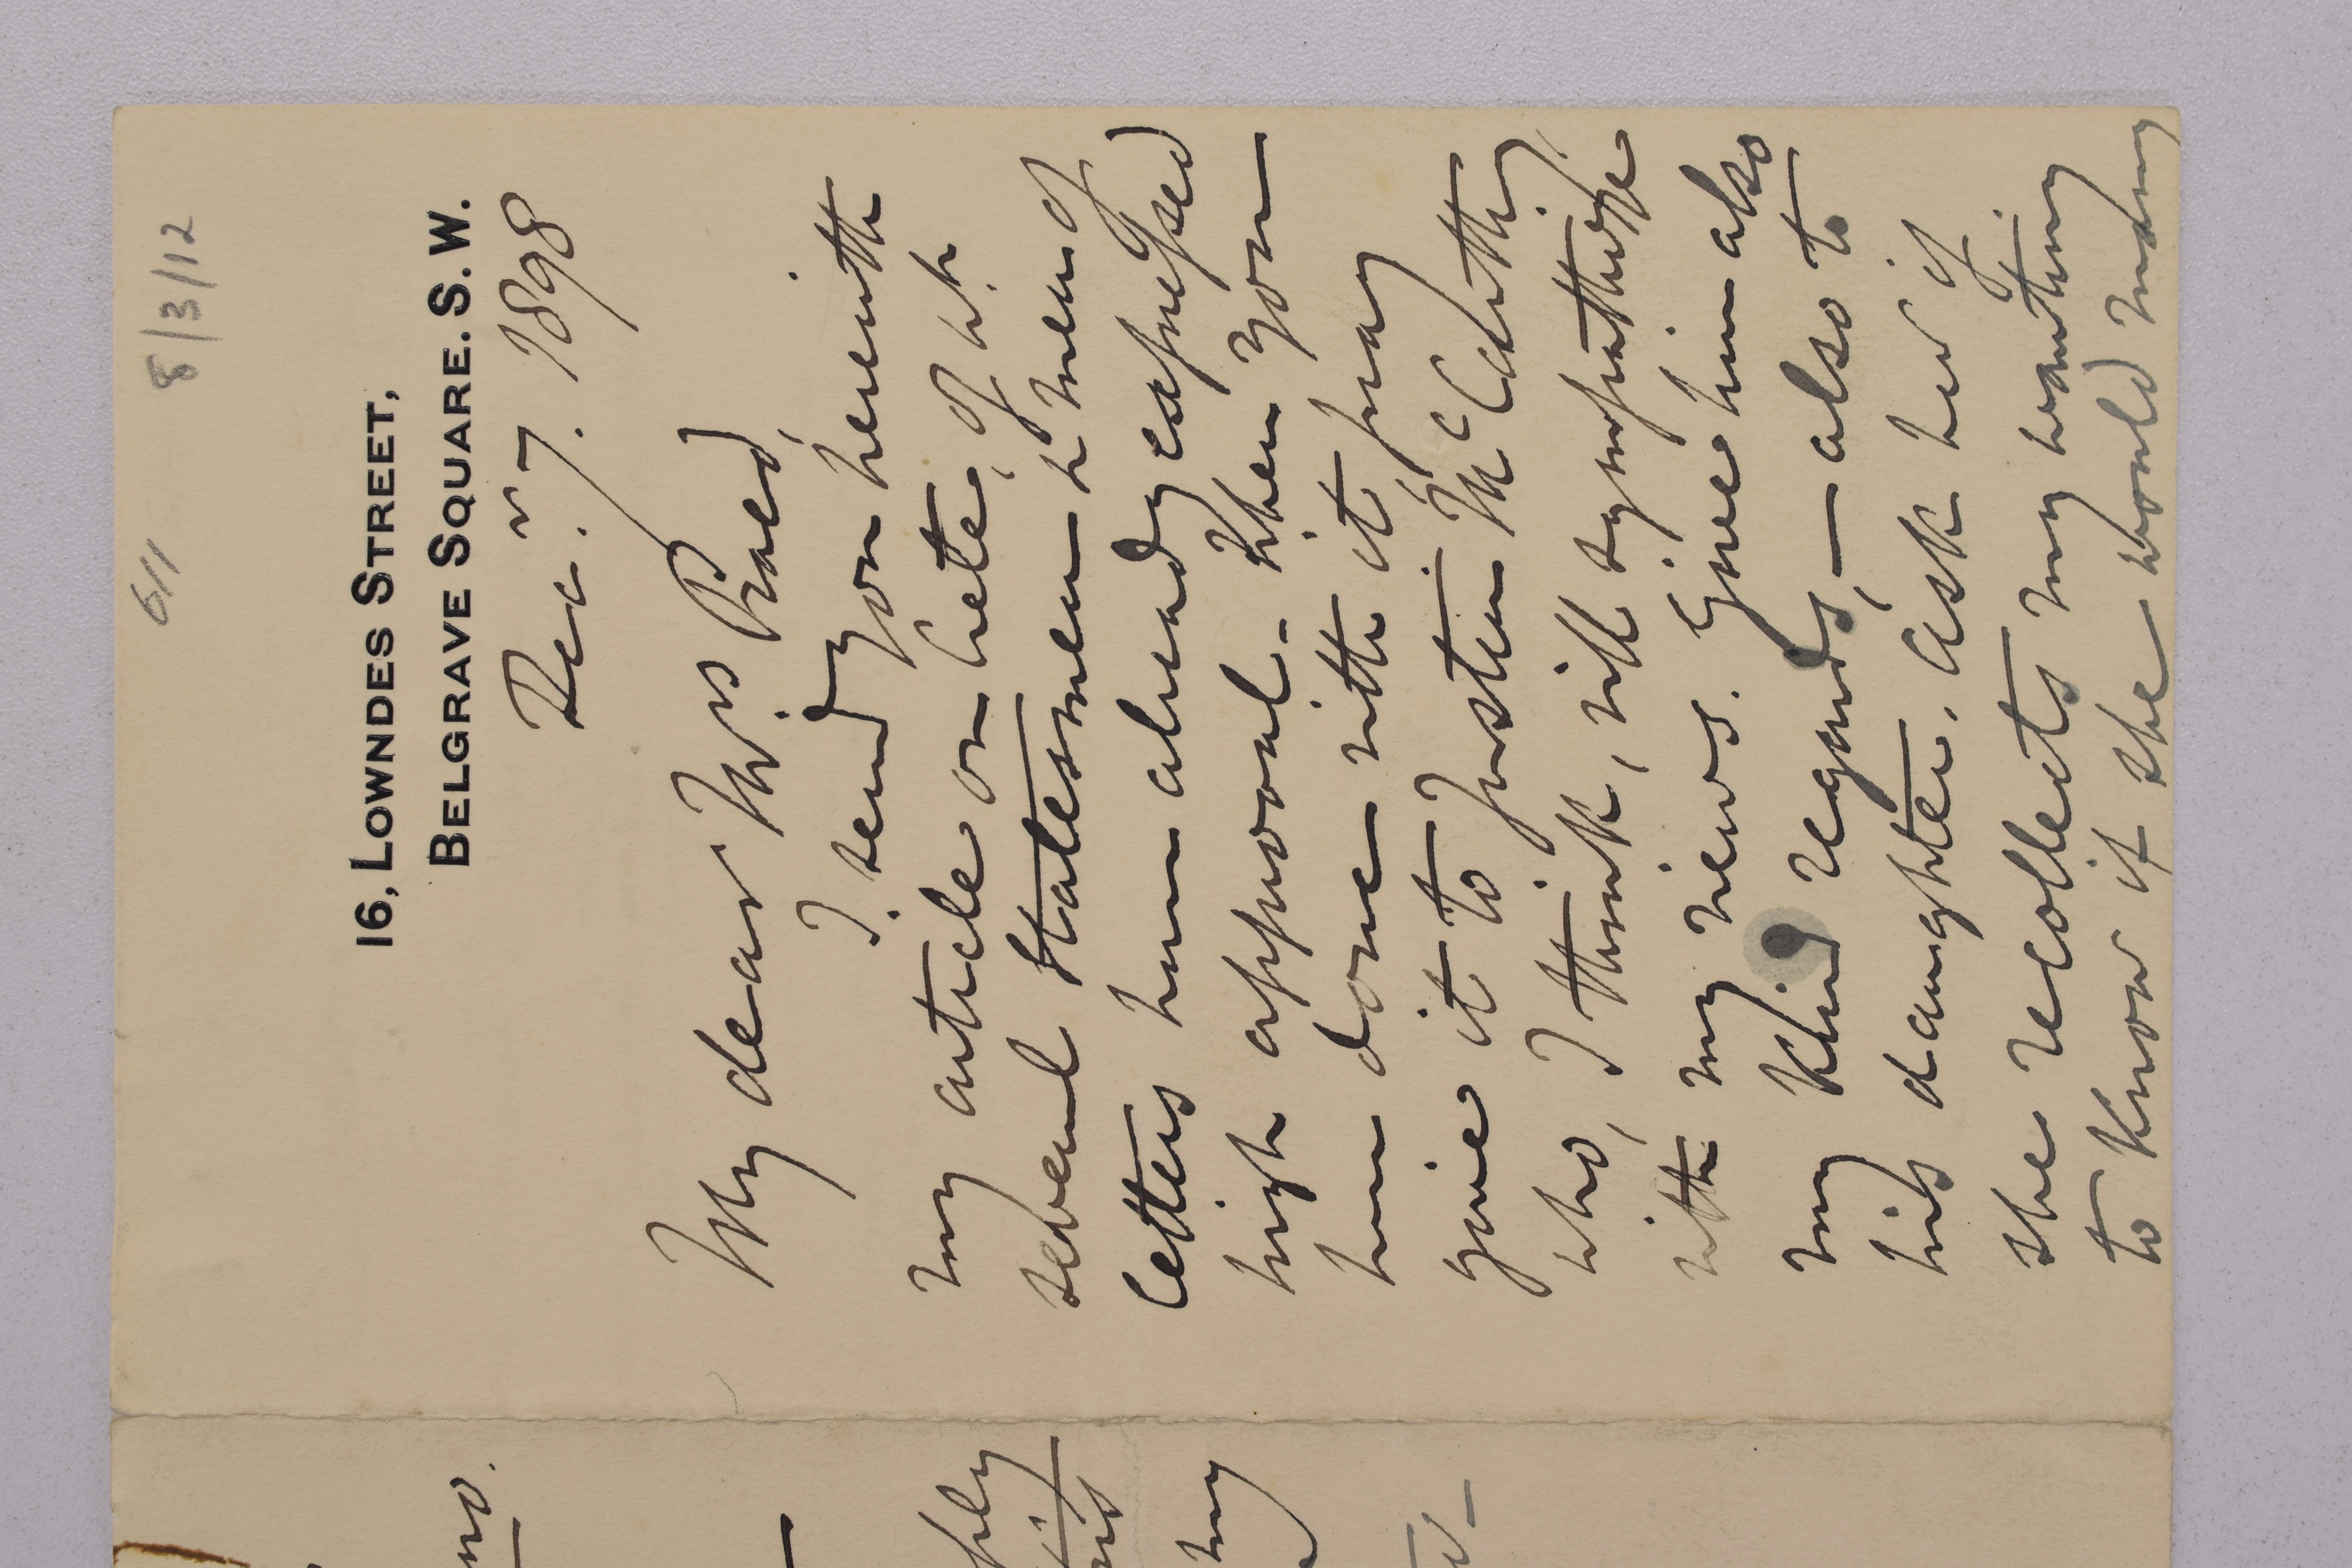 611 8/3/12
16, LOWNDES STREET,
BELGRAVE SQUARE. S. W.
Decr. 7. 1898
My dear Mrs Praed,
I send you herewith
my article on Crete, of wh
several Statesmen & men of
letters have already expressed
high approval. When you
have done with it pray
give it to Justin McCarthy,
who, I think, will sympathize
with my views. Give him also
my kind regards, — also to
his daughter. Ask her if
she recollects my wanting
to know if she would marry
ply
my